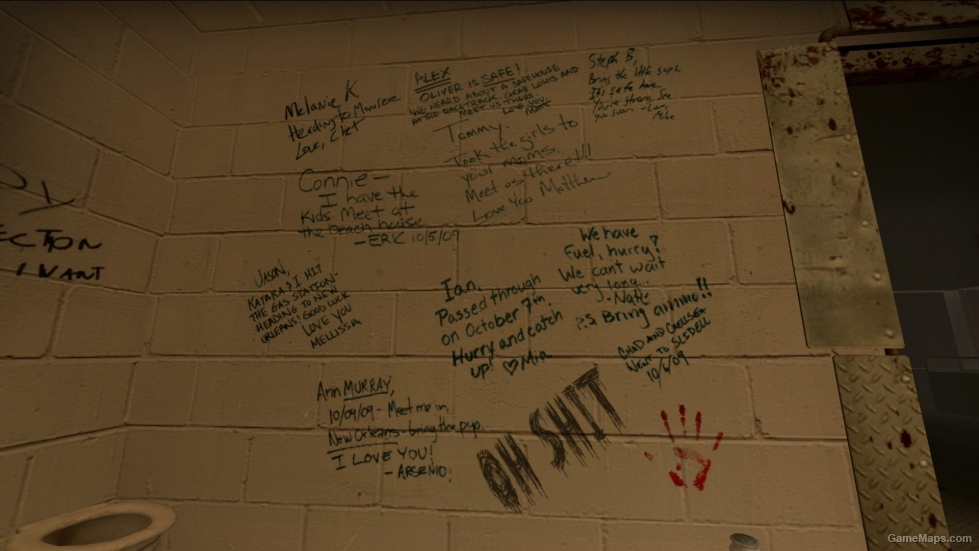 Melanie K
Heading to Monroe
Love, Chet
ALEX
OLIVER IS SAFE!
WE HEARD ABOUT A SAFEHOUSE
AT THE RACETRACK. GRAB LOUIS AND
MEET US THERE.
LOVE YOU
Steph B,
Bring the little guys.
It's safe here.
You're strong. See
You soon - Love,
Mike
Tammy.
Took the girls to
your moms.
Meet us there!!!
Love You Matthew
Connie-
I have the
kids Meet at
the beach house
-ERIC 10/5/09
ECTION
I WANT
JASON,
KATARA & I HIT
THE GAS STATION-
HEADING TO NEW
ORLEANS! GOOD LUCK
LOVE YOU
MELLISSA
Ian,
Passed through
on October 7th.
Hurry and catch
up! ♡Mia
We have
Fuel, hurry!
We cant wait
very long...
-Nate
P.S Bring ammo!!
CHAD AND CHELSEA
WENT TO SLIDELL
10/6/09
Ann MURRAY,
10/04/09- Meet me in
New Orleans - bring the pup.
I LOVE YOU!
-ARSENIO.
OH SHIT
GameMaps.com